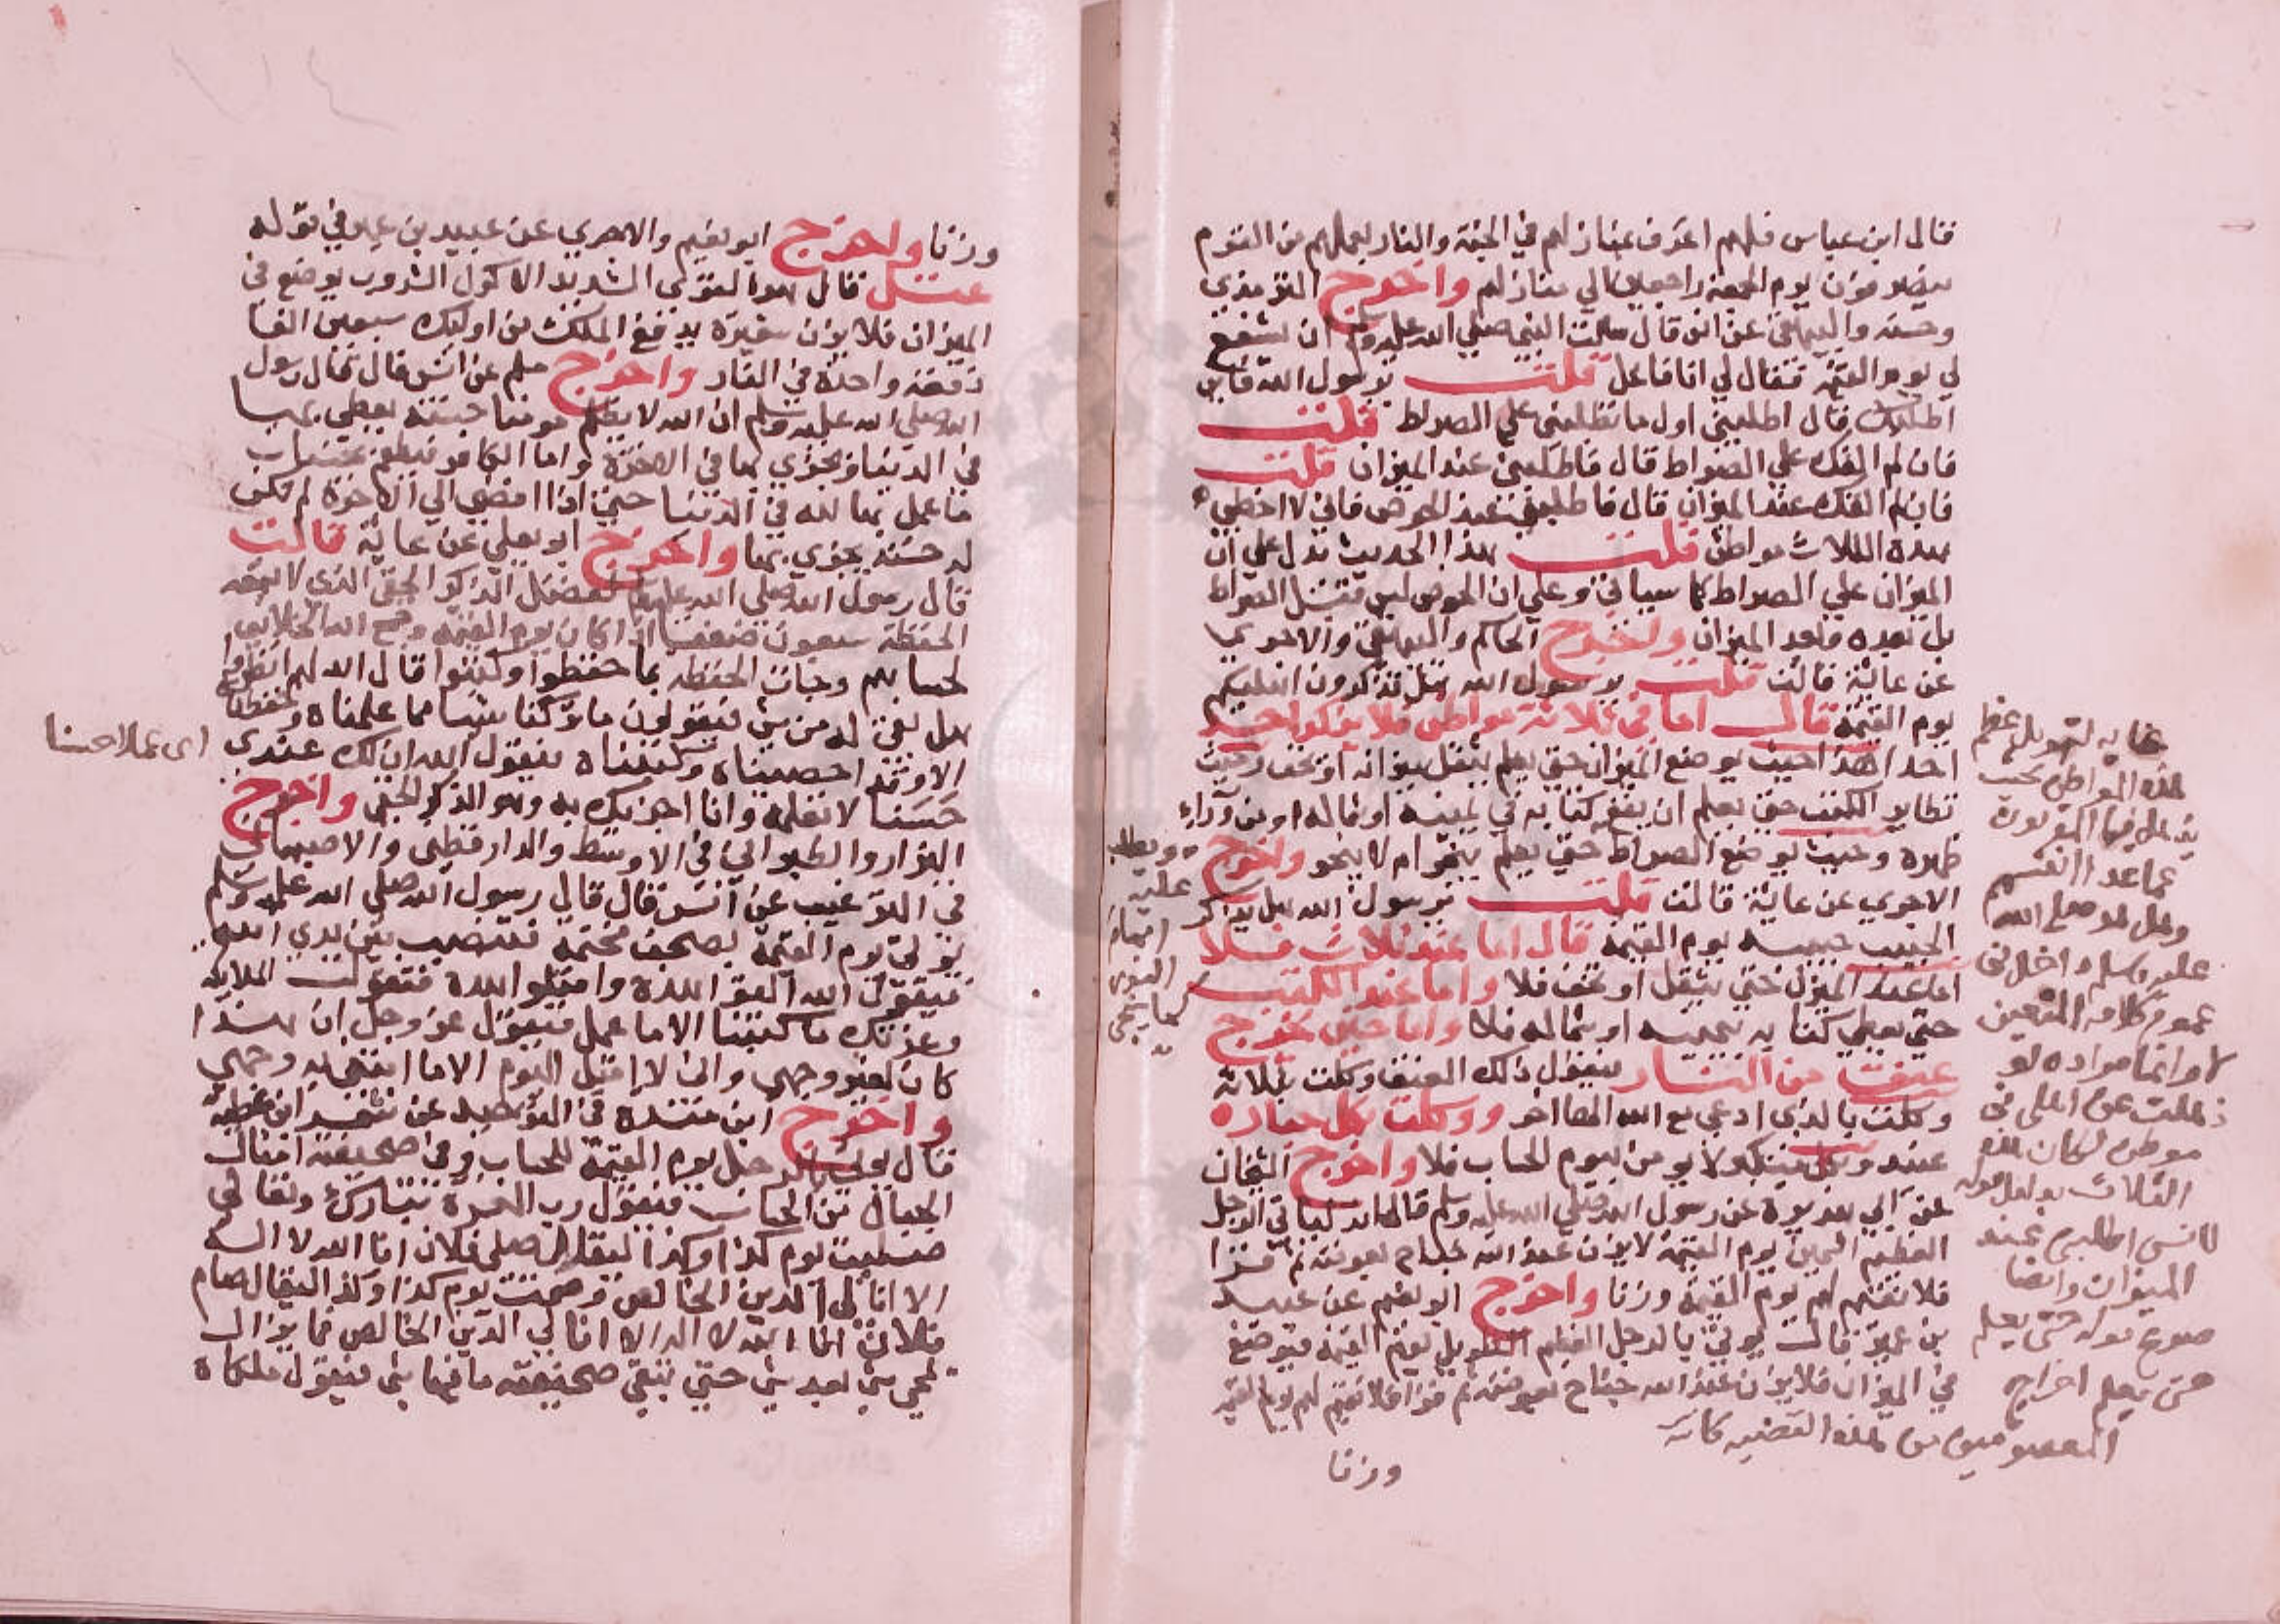 قال ابن عباس فلهم اعرف بمنازلهم في الجنة والنار بعملهم من القوم
ينصرفون يوم الجمعة راجعين الي منازلهم واخرج الترمذي
وحسنه والبيهقي عن انس قال سالت النبي صلي الله عليه وسلم ان يشفع
لي يوم القيمة فقال لي انا فاعل قلت يرسول الله فاين
اطلبك قال اطلبني اول ما تطلبني علي الصراط قلت
فان لم القك علي الصراط قال فاطلبني عند الميزان قلت
فان لم القك عند الميزان قال فاطلبني عند الحوض فاني لا اخطي
هذه الثلاث مواطن قلت هذا الحديث يدل علي ان
الميزان علي الصراط كما سياتي وعلي ان الحوض ليس قبل الصراط
بل بعده وبعد الميزان واخرج الحاكم والبيهقي والاجري
عن عايشة قالت قلت يرسول الله هل تذكرون اهليكم
يوم القيمة قال اما في ثلاثة مواطن فلا يذكر احد
احدا هذا حيث يوضع الميزان حتي يعلم يثقل ميزانه او يخف وحيث
تطاير الكتب حتي يعلم اين يقع كتابه في يمينه او شماله او من وراء
ظهره وحيث يوضع الصراط حتي يعلم ينجو ام لا ينجو واخرج
الاجري عن عايشة قالت قلت يرسول الله هل يذكر
الحبيب حبيبه يوم القيمة قال اما عند ثلاث فلا
اما عند الميزان حتي يثقل او يخف فلا واما عند الكتب
حتي يعطي كتابه بيمينه او بشماله فلا واما حين يخرج
عنق من النار فيقول ذلك العنق وكلت بثلاثة
وكلت بالذي ادعي مع الله الها اخر ووكلت بكل جبار
عنيد وبكل متكبر لا يومن بيوم الحساب فلا واخرج الشيخان
عن ابي هريرة عن رسول الله صلي الله عليه وسلم قال انه لياتي الرجل
العظيم السمين يوم القيمة لا يزن عند الله جناح بعوضة ثم قرا
فلا نقيم لهم يوم القيمة وزنا واخرج ابو نعيم عن عبيد
بن عمير قال يوتي بالرجل العظيم الطويل يوم القيمة فيوضع
في الميزان فلا يزن عند الله جناح بعوضة ثم قرا فلا نقيم لهم يوم القيمة
وزنا
هذه المواطن بحيث
يذهل فيها المقربون
عما عدا انفسهم
وهل هو صلي الله
عليه وسلم داخل في
عموم كلامه
موطن لكان هذه
لانس اطلبني عند
الميزان وايضا
حتي يعلم
من هذه القضية
وزنا واخرج ابو نعيم والاجري عن عبيد بن عمير في قوله
عتل قال هو القوي الشديد الاكول الشروب يوضع في
الميزان فلا يزن شعيرة يدفع الملك من اوليك سبعين الفا
دفعة واحدة في النار واخرج مسلم عن انس قال قال رسول
الله صلي الله عليه وسلم ان الله لا يظلم مومنا حسنة يعطي بها
في الدنيا ويجزي بها في الاخرة واما الكافر فيطعم بحسنات
ما عمل بها لله في الدنيا حتي اذا افضي الي الاخرة لم تكن
له حسنة يجزي بها واخرج ابو يعلي عن عايشة قالت
قال رسول الله صلي الله عليه وسلم لفضل الذكر الخفي الذي لا يسمعه
الحفظة سبعون ضعفا اذا كان يوم القيمة وجمع الله الخلايق
لحسابهم وجات الحفظه بما حفظوا وكتبوا قال الله لهم انظروا
هل بقي له من شي فيقولون ما تركنا شيا مما علمناه وحفظناه
الا وقد احصيناه وكتبناه فيقول الله ان لك عندي
حسنا لا تعلمه وانا اجزيك به وهو الذكر الخفي واخرج
اي عملا حسنا
البزار والطبراني في الاوسط والدار قطني والاصبهاني
في الترغيب عن انس قال قال رسول الله صلي الله عليه وسلم
يوتي يوم القيمة بصحف مختمة فتنصب بين يدي الله
فيقول الله القوا هذه واقبلوا هذه فتقول الملايكة
وعزتك ما كتبنا الا ما عمل فيقول عز وجل ان هذا
كان لغير وجهي واني لا اقبل اليوم الا ما ابتغي به وجهي
واخرج ابن
قال يوتي بالرجل يوم القيمة للحساب وفي صحيفته امثال
الجبال من الحسنات فيقول رب العزة تبارك وتعالي
صليت يوم كذا وكذا ليقال صلي فلان انا الله لا اله
الا انا لي الدين الخالص وصمت يوم كذا وكذا ليقال صام
فلان انا الله لا اله الا انا لي الدين الخالص فما يزال
يمحي شي بعد شي حتي تبقي صحيفته ما فيها شي فيقول ملكاه